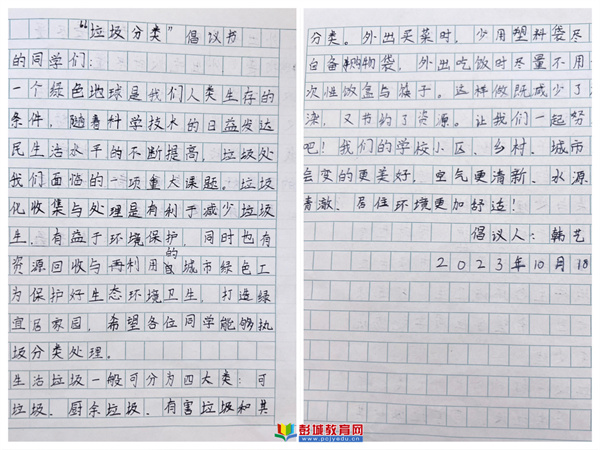 “垃圾分类”倡议书
的同学们:
一个绿色地球是我们人类生存的
条件,随着科学技术的日益发达
民生活水平的不断提高,垃圾处
我们面临的一项重大课题。垃圾
化收集与处理是有利于减少垃圾
生、有益于环境保护,同时也有
资源回收与再利用的城市绿色工
为保护好生态环境卫生,打造绿
宜居家园,希望各位同学能够执
圾分类处理。
生活垃圾一般可分为四大类:可
垃圾、厨余垃圾、有害垃圾和其
分类。外出买菜时,少用塑料袋尽
自备购物袋,外出吃饭时尽量不用
次性饭盒与筷子。这样做既减少了
染,又节约了资源。让我们一起努
吧!我们的学校小区、乡村、城市
变的更美好,空气更清新、水源
清澈、居住环境更加舒适!
倡议人:韩艺
2023年10月18
彭城教育网
www.pcjyedu.cn